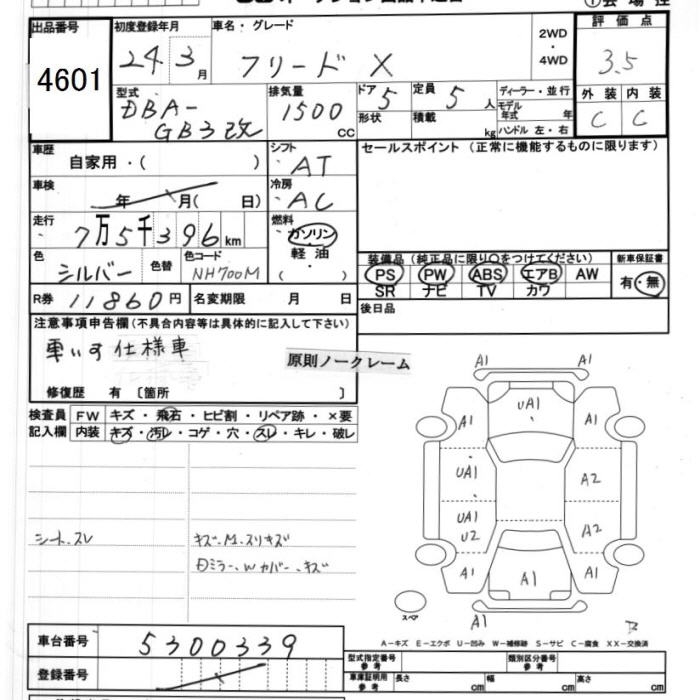 出品番号
4601
初度登録年月
24.3月
車名・グレード
フリード X
2WD
・
4WD
評価点
3.5
外装 内装
C C
型式
DBA-
GB3改
排気量
1500
CC
ドア 5
形状
定員 5 人
積載 kg
ディーラー・並行
モデル
年式 年
ハンドル 左・右
車歴
自家用・( )
シフト
AT
セールスポイント (正常に機能するものに限ります)
車検
年 月( 日)
冷房
AC
走行
7万5千396km
燃料
ガソリン
軽油
・( )
色
シルバー
色替
色コード
NH700M
装備品 (純正品に限り○をつけてください)
PS PW ABS エアB AW
SR ナビ TV カワ
新車保証書
有・無
R券 11860円
名変期限 月 日
後日品
注意事項申告欄(不具合内容等は具体的に記入して下さい)
車いす仕様車
原則ノークレーム
修復歴 有 〔箇所 〕
検査員
記入欄
FW キズ・飛石・ヒビ割・リペア跡・×要
内装 キズ・汚レ・コゲ・穴・スレ・キレ・破レ
シート.スレ
キズ.M.スリキズ
Dミラー.Wカバー.キズ
A1 A1
UA1
A1 A1
UA1 A2
UA1
U2 A2
A1 A1 A1
A1
スペア
車台番号
5300339
登録番号
A－キズ E－エクボ U－凹み W－補修跡 S－サビ C－腐食 XX－交換済
型式指定番号
参考
類別区分番号
参考
車庫証明用
参考
長さ cm
幅 cm
高さ cm